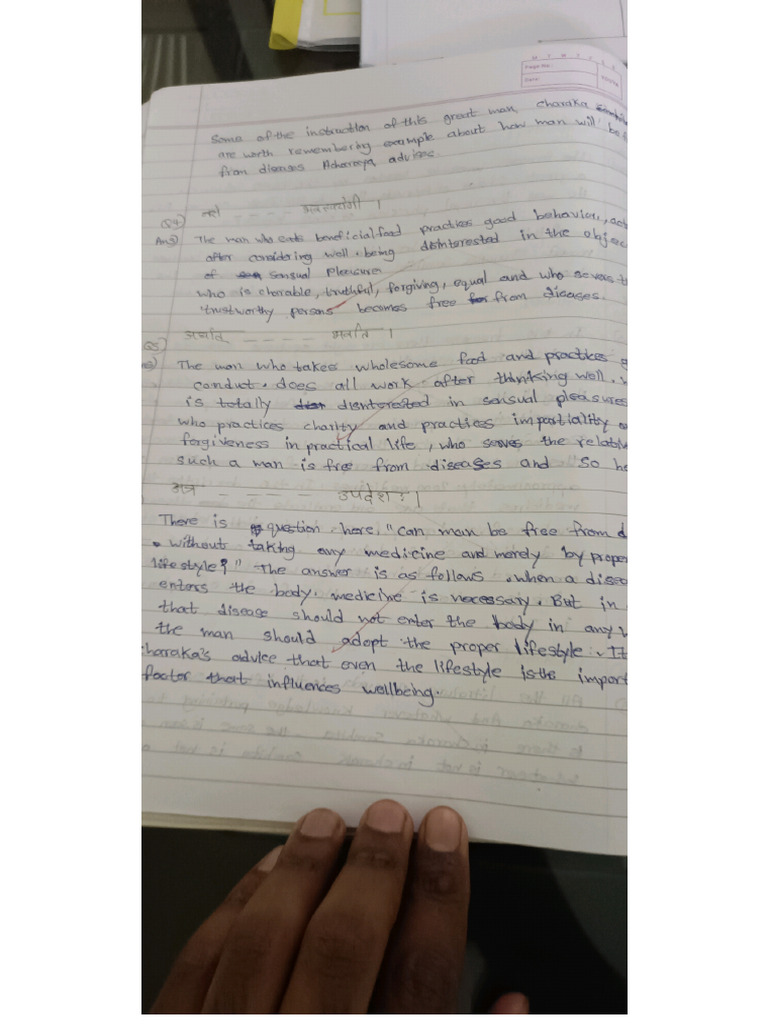 Page No.
Date
Some of the instruction of this great man charaka
are worth remembering example about how man will be
from diseases Acharaya, advises.
Q4) नरो _ _ _ _ भवत्यरोगी ।
Ans) The man who eats beneficial food practices good behavior, act
after considering well. being disinterested in the objec
of sensual Pleasure
who is charable, truthful, forgiving, equal and who serves t
trustworthy persons becomes free from diseases.
Q5) अर्थात् _ _ _ _ भवति ।
The man who takes wholesome food and practices g
conduct. does all work after thinking well.
is totally disinterested in sensual pleasures
who practices charity and practices impartiality
forgiveness in practical life, who serves the relativ
such a man is free from diseases and so he
अत्र _ _ _ _ उपदेशः ।
There is question here, "can man be free from d
without taking any medicine and merely by proper
lifestyle?" The answer is as follows. when a disea
enters the body. medicine is necessary. But in
that disease should not enter the body in any
the man should adopt the proper lifestyle. It
haraka's advice that even the lifestyle is the import
factor that influences wellbeing.